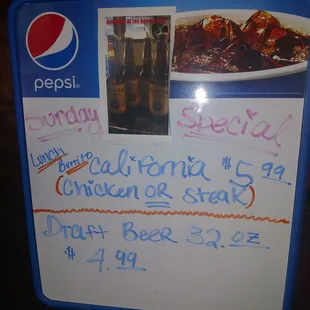 pepsi
Sunday Special
Lunch
burrito California $5.99
(chicken OR steak)
Draft Beer 32.oz
$4.99